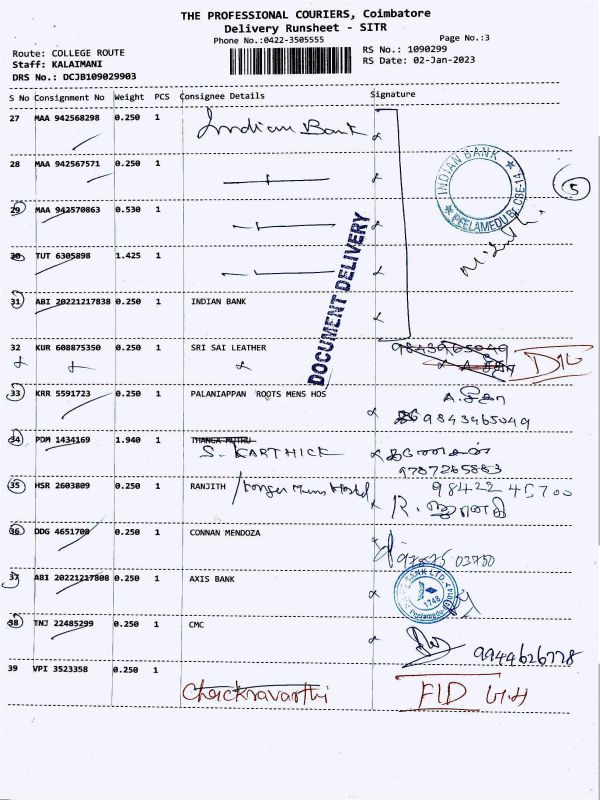 THE PROFESSIONAL COURIERS, Coimbatore
Delivery Runsheet - SITR
Phone No.:0422-3505555
Page No.:3
Route: COLLEGE ROUTE
RS No.: 1090299
Staff: KALAIMANI
RS Date: 02-Jan-2023
DRS No.: DCJB109029903
S No Consignment No Weight PCS Consignee Details Signature
27 MAA 942568298 0.250 1 Indian Bank
28 MAA 942567571 0.250 1
INDIAN BANK
PEELAMEDU Br. CBE-14
5
29 MAA 942570863 0.530 1
30 TUT 6305898 1.425 1
DOCUMENT DELIVERY
31 ABI 20221217838 0.250 1 INDIAN BANK
32 KUR 608875350 0.250 1 SRI SAI LEATHER 9843965049
33 KRR 5591723 0.250 1 PALANIAPPAN ROOTS MENS HOS
9843465049
34 PDM 1434169 1.940 1 THANGA MUTHU
S. KARTHICK
9787265883
35 HSR 2603809 0.250 1 RANJITH
98422 45700
36 DDG 4651708 0.250 1 CONNAN MENDOZA
37 ABI 20221217808 0.250 1 AXIS BANK
38 TNJ 22485299 0.250 1 CMC
9944626778
39 VPI 3523358 0.250 1
Chackravarthi